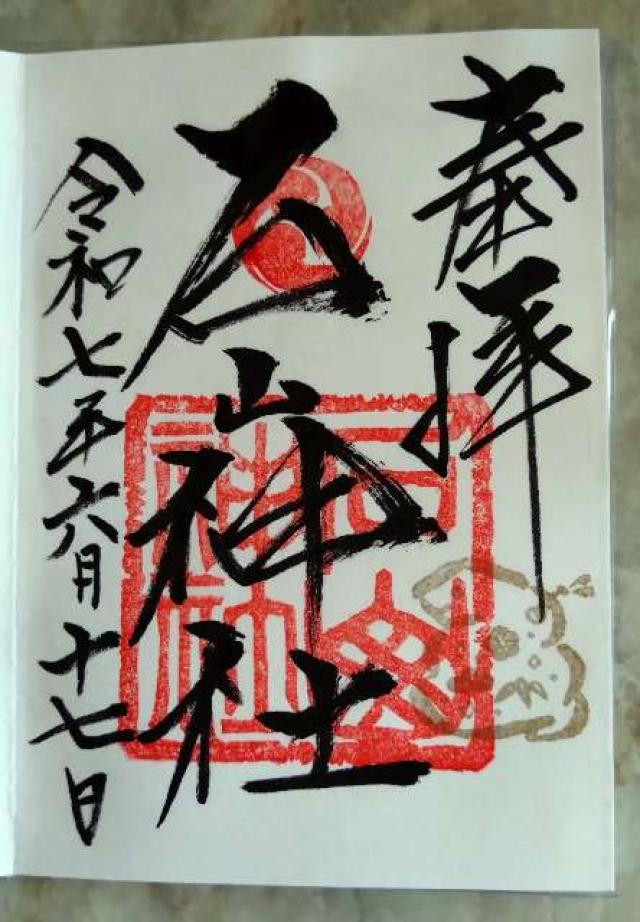 奉拝
石山神社
令和七年六月十七日
石山
神社